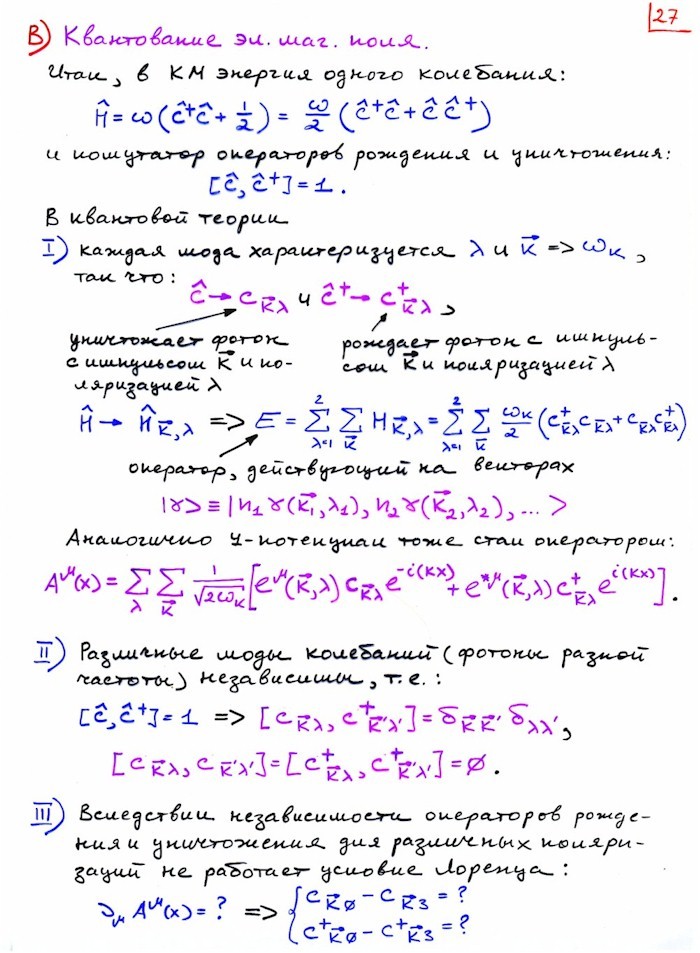 27
В) Квантование эл. маг. поля.
Итак, в КМ энергия одного колебания:
Ĥ = ω(ĉ⁺ĉ + 1/2) = ω/2 (ĉ⁺ĉ + ĉĉ⁺)
и коммутатор операторов рождения и уничтожения:
[ĉ, ĉ⁺] = 1.
В квантовой теории
I) каждая мода характеризуется λ и k⃗ => ω_k,
так что:
ĉ → c_{k⃗λ} и ĉ⁺ → c⁺_{k⃗λ},
уничтожает фотон с импульсом k⃗ и поляризацией λ
рождает фотон с импульсом k⃗ и поляризацией λ
Ĥ → Ĥ_{k⃗,λ} => E = Σ_{λ=1}^{2} Σ_{k⃗} H_{k⃗,λ} = Σ_{λ=1}^{2} Σ_{k⃗} ω_k/2 (c⁺_{k⃗λ} c_{k⃗λ} + c_{k⃗λ} c⁺_{k⃗λ})
оператор, действующий на векторах
|γ> ≡ |n₁γ(k⃗₁,λ₁), n₂γ(k⃗₂,λ₂), ...>
Аналогично 4-потенциал тоже стал оператором:
A^μ(x) = Σ_λ Σ_{k⃗} 1/√(2ω_k) [e^μ(k⃗,λ) c_{k⃗λ} e^{-i(kx)} + e^{*μ}(k⃗,λ) c⁺_{k⃗λ} e^{i(kx)}].
II) Различные моды колебаний (фотоны разной
частоты) независимы, т.е.:
[ĉ, ĉ⁺] = 1 => [c_{k⃗λ}, c⁺_{k⃗'λ'}] = δ_{k⃗k⃗'} δ_{λλ'},
[c_{k⃗λ}, c_{k⃗'λ'}] = [c⁺_{k⃗λ}, c⁺_{k⃗'λ'}] = ∅.
III) Вследствии независимости операторов рожде-
ния и уничтожения для различных поляри-
заций не работает условие Лоренца:
∂_μ A^μ(x) = ? => { c_{k⃗∅} - c_{k⃗3} = ?
c⁺_{k⃗∅} - c⁺_{k⃗3} = ?